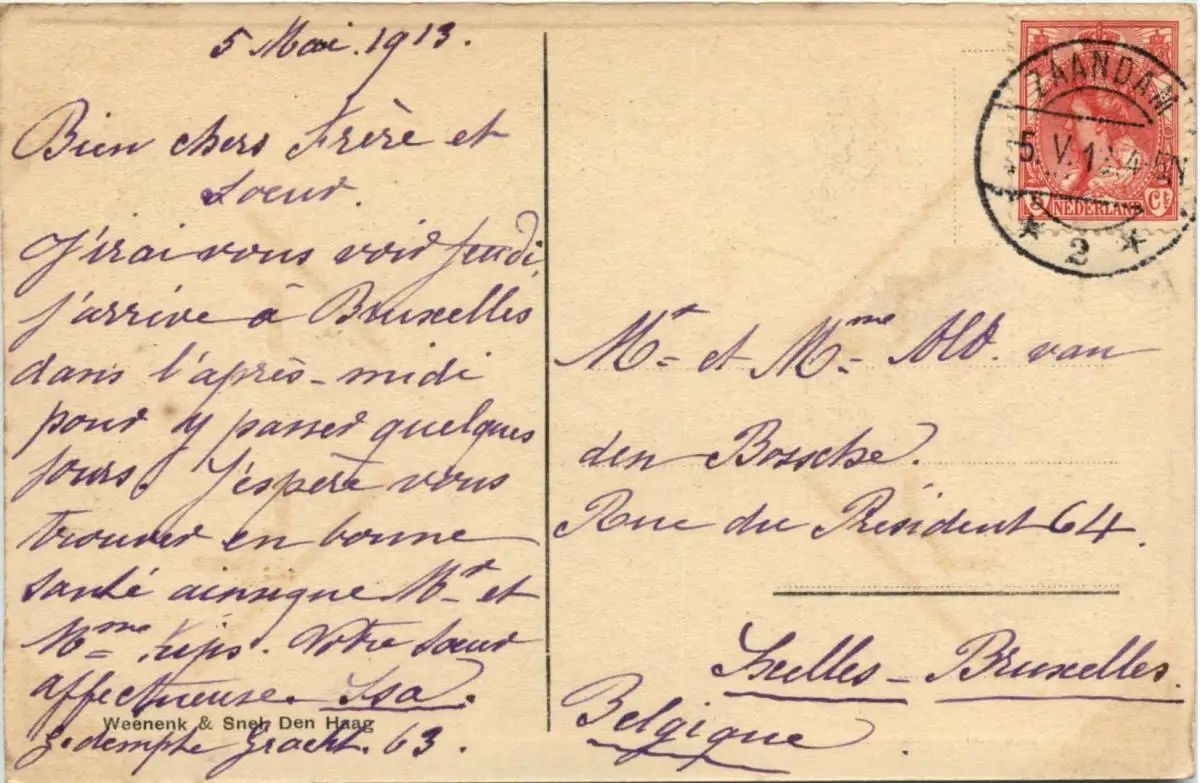 5 Mai. 1913.
Bien chers Frère et
Soeur.
J'irai vous voir jeudi,
j'arrive à Bruxelles
dans l'après-midi
pour y passer quelques
jours. J'espère vous
trouver en bonne
santé ainsique Mr et
Mme. Votre Soeur
affectueuse. Isa.
Weenenk & Snel, Den Haag
Gedempte Gracht. 63.
ZAANDAM
5.V.13.4-5N
2
5 NEDERLAND Ct
Mr et Mme Ald. van
den Bossche.
Rue du Président 64.
Ixelles-Bruxelles.
Belgique